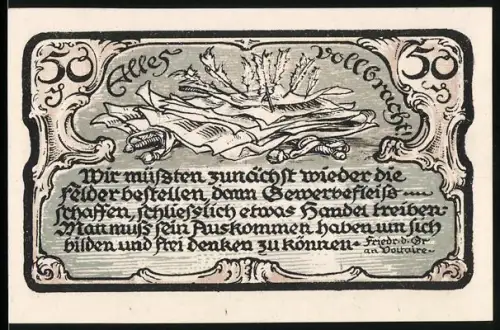 50 Alles vollbracht! 50
Wir müßten zunächst wieder die
Felder bestellen, dann Gewerbefleiß
schaffen, schließlich etwas Handel treiben.
Man muß sein Auskommen haben um sich
bilden und frei denken zu können.
Friedr. d. Gr.
an Voltaire.